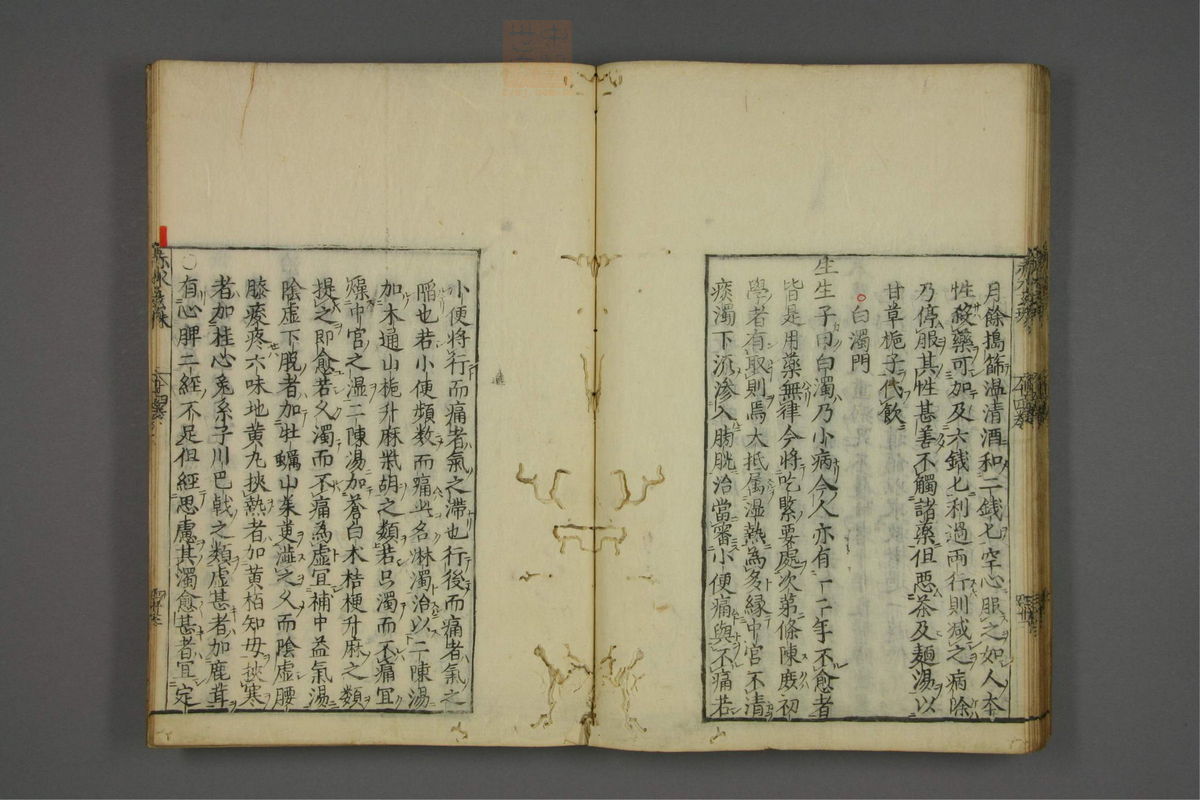 月餘搗篩温清酒和二錢匕空心服之如人本
性殺藥可加及六錢匕利過兩行則减之病除
乃停服其性甚善不觸諸藥但惡茶及麺湯以
甘草梔子代飲
○白濁門
生生子曰白濁乃小病今人亦有一二年不愈者
皆是用藥無律今將吃緊要處次第條陳庻初
學者有取則焉大抵属湿熱為多縁中宮不清
痰濁下流渗入膀胱治當審小便痛與不痛若
小便將行而痛者氣之滞也行後而痛者氣之
陷也若小便頻数而痛此名淋濁治以二陳湯
加木通山梔升麻柴胡之類若只濁而不痛宜
燥中宮之湿二陳湯加蒼白木桔梗升麻之類
提之即愈若久濁而不痛為虚宜補中益氣湯
陰虚下脫者加牡蠣山茱萸澁之久而陰虚腰
膝痠疼六味地黄丸挾熱者加黄栢知母挾寒
者加桂心兎糸子川巴戟之類虚甚者加鹿茸
○有心脾二經不足但經思慮其濁愈甚者宜定